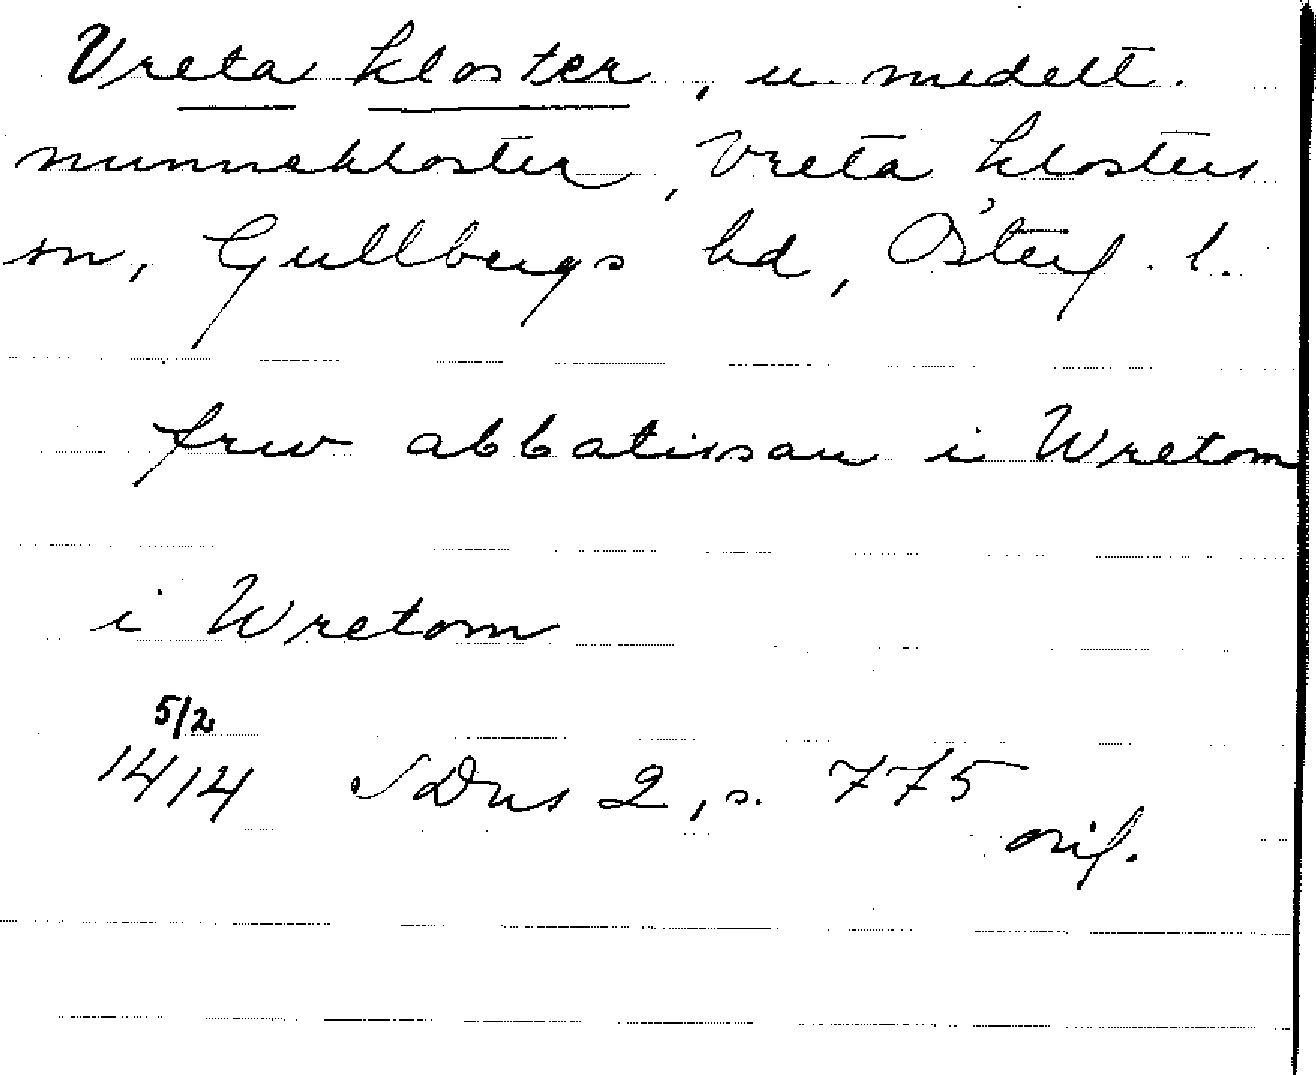 Vreta kloster, u medelt.
nunnekloster, Vreta klosters
sn, Gullbergs hd, Österg. l.
frw abbatissan i Wretom
i Wretom
5/2
1414 SDns 2, s. 775
orig.